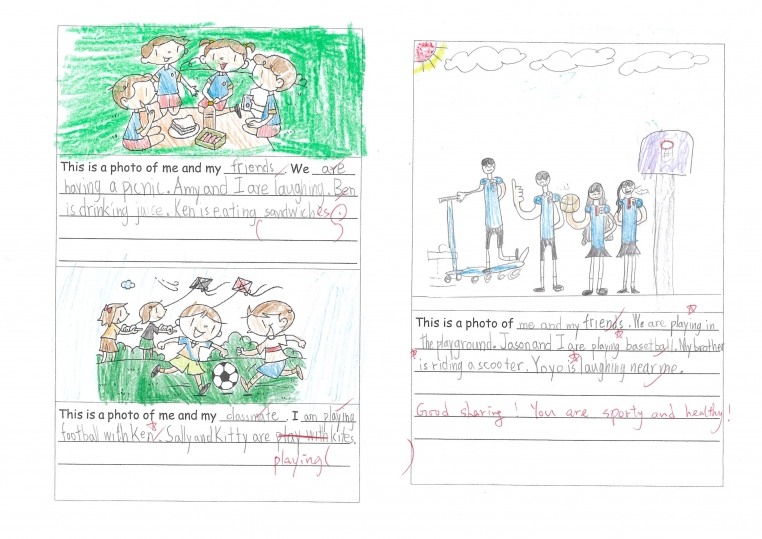 This is a photo of me and my friends. We are
having a picnic. Amy and I are laughing. Ben
is drinking juice. Ken is eating sandwiches.
This is a photo of me and my classmate. I am playing
football with Ken. Sally and Kitty are play with kites.
playing
This is a photo of me and my friends. We are playing in
the playground. Jason and I are playing basketball. My brother
is riding a scooter. Yoyo is laughing near me.
Good sharing! You are sporty and healthy!